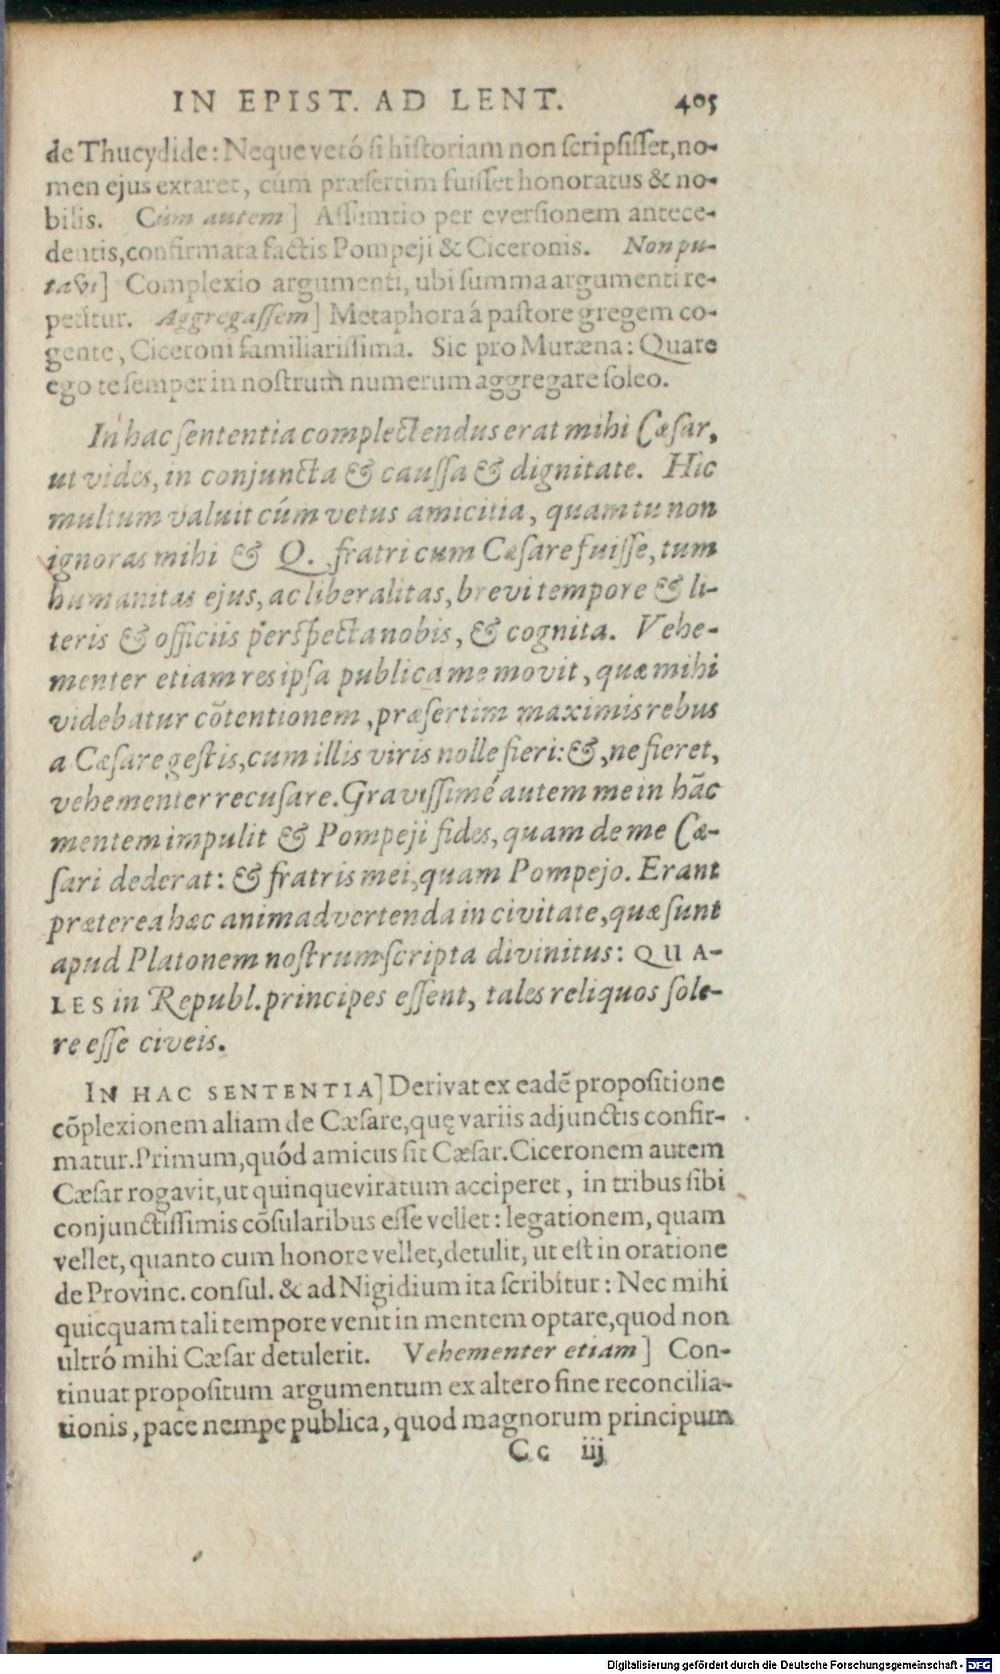 IN EPIST. AD LENT. 405
de Thucydide: Neque veró si historiam non scripsisset, no-
men ejus extaret, cum præsertim fuisset honoratus & no-
bilis. Cúm autem] Assumtio per eversionem antece-
dentis, confirmata factis Pompeji & Ciceronis. Non pu-
tavi] Complexio argumenti, ubi summa argumenti re-
petitur. Aggregassem] Metaphora á pastore gregem co-
gente, Ciceroni familiarissima. Sic pro Muræna: Quare
ego te semper in nostrum numerum aggregare soleo.
In hac sententia complectendus erat mihi Cæsar,
ut vides, in conjuncta & caussa & dignitate. Hic
multum valuit cúm vetus amicitia, quam tu non
ignoras mihi & Q. fratri cum Cæsare fuisse, tum
humanitas ejus, ac liberalitas, brevi tempore & li-
teris & officiis perspecta nobis, & cognita. Vehe-
menter etiam res ipsa publica me movit, quæ mihi
videbatur cōtentionem, præsertim maximis rebus
a Cæsare gestis, cum illis viris nolle fieri: &, ne fieret,
vehementer recusare. Gravissimé autem me in hāc
mentem impulit & Pompeji fides, quam de me Cæ-
sari dederat: & fratris mei, quam Pompejo. Erant
præterea hæc animadvertenda in civitate, quæ sunt
apud Platonem nostrum scripta divinitus: QUA-
LES in Republ. principes essent, tales reliquos sole-
re esse civeis.
IN HAC SENTENTIA] Derivat ex eadē propositione
cōplexionem aliam de Cæsare, quę variis adjunctis confir-
matur. Primum, quód amicus sit Cæsar. Ciceronem autem
Cæsar rogavit, ut quinqueviratum acciperet, in tribus sibi
conjunctissimis cōsularibus esse vellet: legationem, quam
vellet, quanto cum honore vellet, detulit, ut est in oratione
de Provinc. consul. & ad Nigidium ita scribitur: Nec mihi
quicquam tali tempore venit in mentem optare, quod non
ultró mihi Cæsar detulerit. Vehementer etiam] Con-
tinuat propositum argumentum ex altero fine reconcilia-
tionis, pace nempe publica, quod magnorum principum
Cc iij
Digitalisierung gefördert durch die Deutsche Forschungsgemeinschaft - DFG